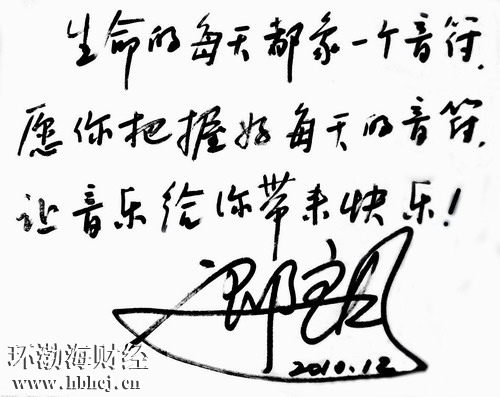 生命的每天都象一个音符.
愿你把握好每天的音符.
让音乐给你带来快乐!
2010.12
环渤海财经
www.hbhcj.cn